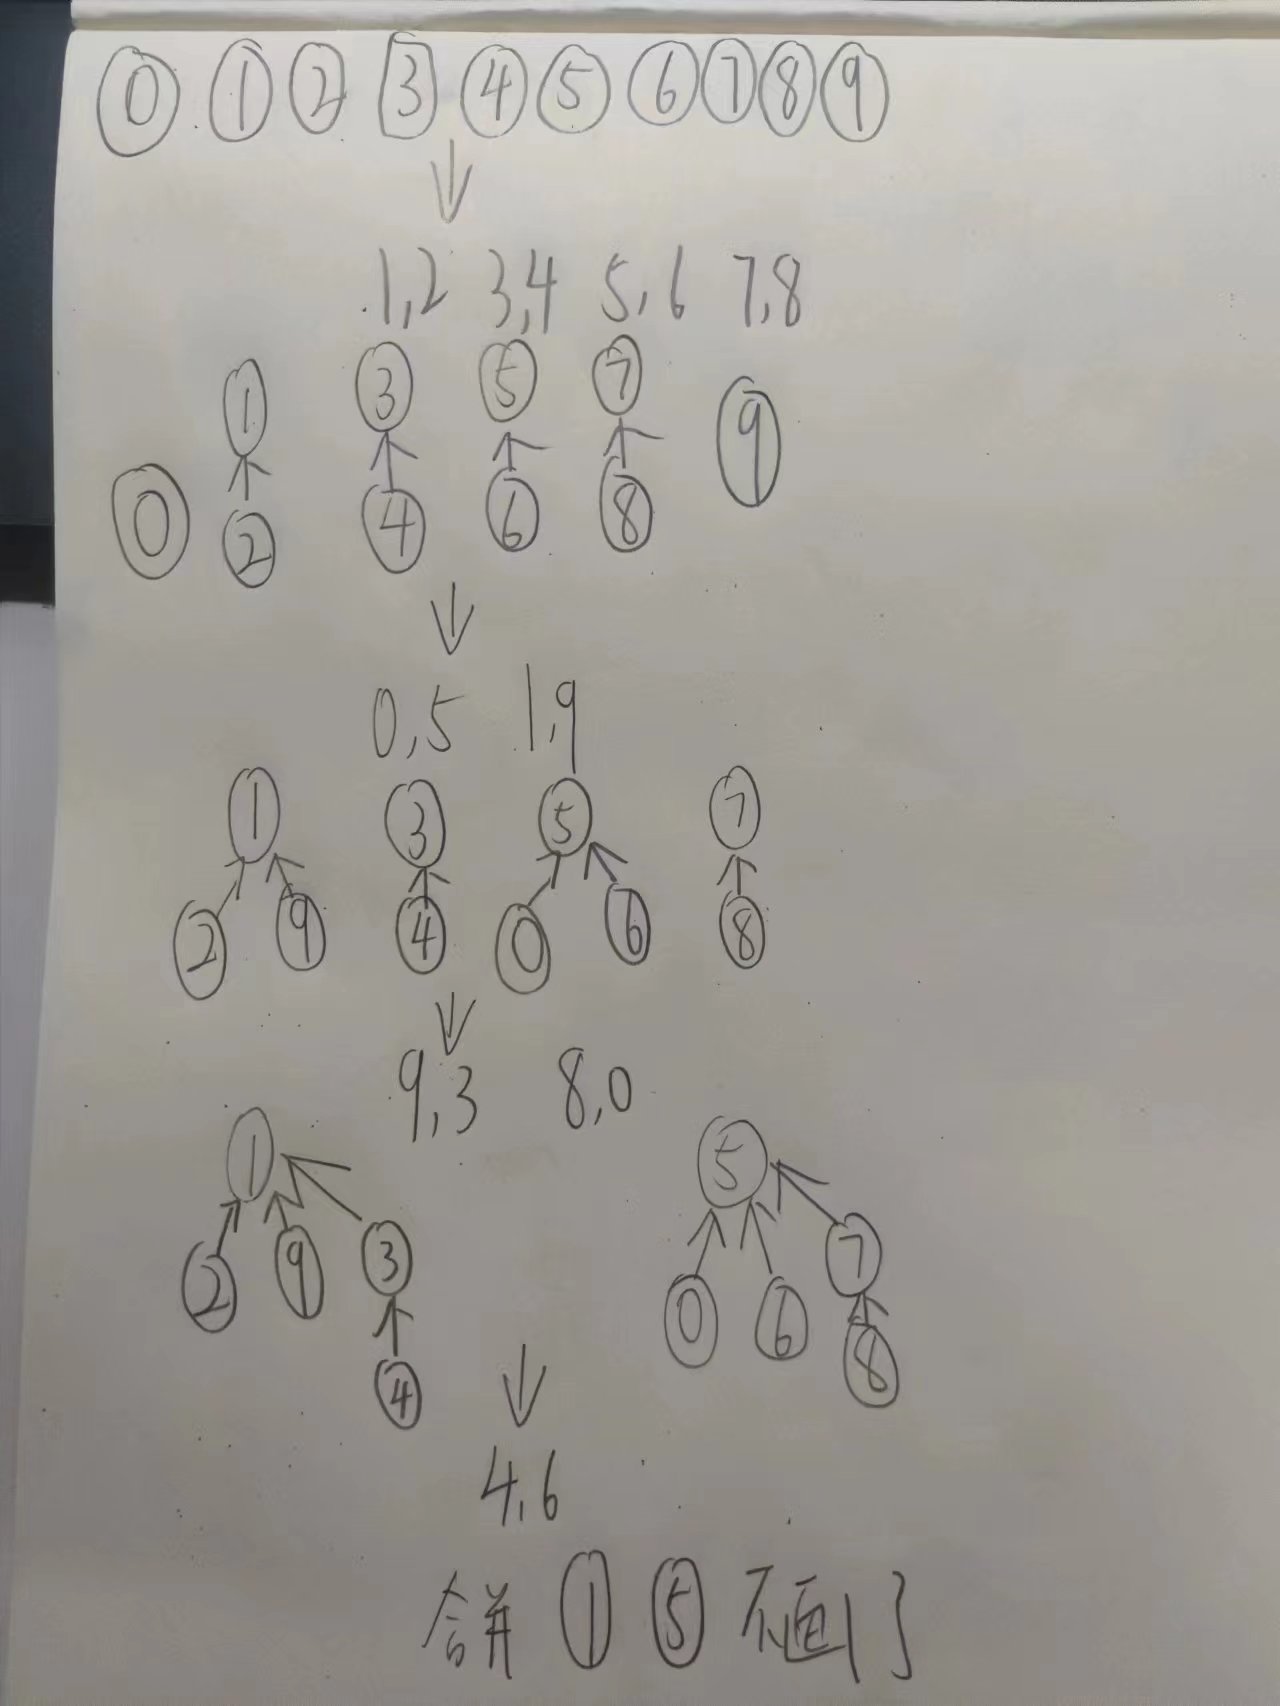 0 1 2 3 4 5 6 7 8 9
1,2 3,4 5,6 7,8
1 3 5 7 9
0 2 4 6 8
0,5 1,9
1 3 5 7
2 9 4 0 6 8
9,3 8,0
1 5
2 9 3 0 6 7
4 8
4,6
合并 1 5 不画了